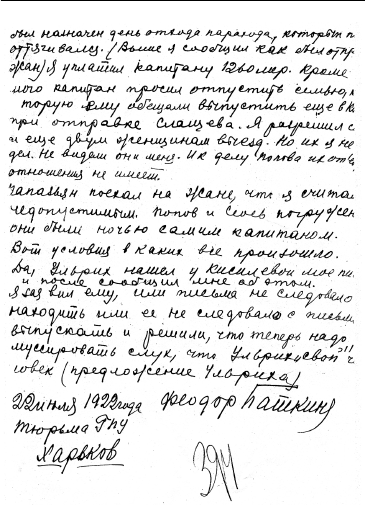 был назначен день отхода парохода, который п
оттягивался. (Выше я сообщил как был отпр
жан) я уплатил капитану 1200 лир. Кроме
ного капитан просил отпустить семью, к
торую ему обещали выпустить еще в К
при отправке Слащева. Я разрешил с
и еще двум женщинам выезд. Но их я не
дел. Не видали они меня. И к делу Попова их отъ
отношения не имеет.
Чапавьян поехал на Жане, что я считал
недопустимым. Попов и погружен
они были ночью самим капитаном.
Вот условия в каких все произошло.
Да, Ульрих нашел у Киселевой мое пи
и после сообщил мне об этом.
Я заявил ему, или письма не следовало
находить или ее не следовало с письм
выпускать и решили, что теперь надо
муссировать слух, что Ульрих "свой ч
ловек" (предложение Ульриха)
22 июля 1922 года Феодор Баткин
Тюрьма ГПУ
Харьков
394